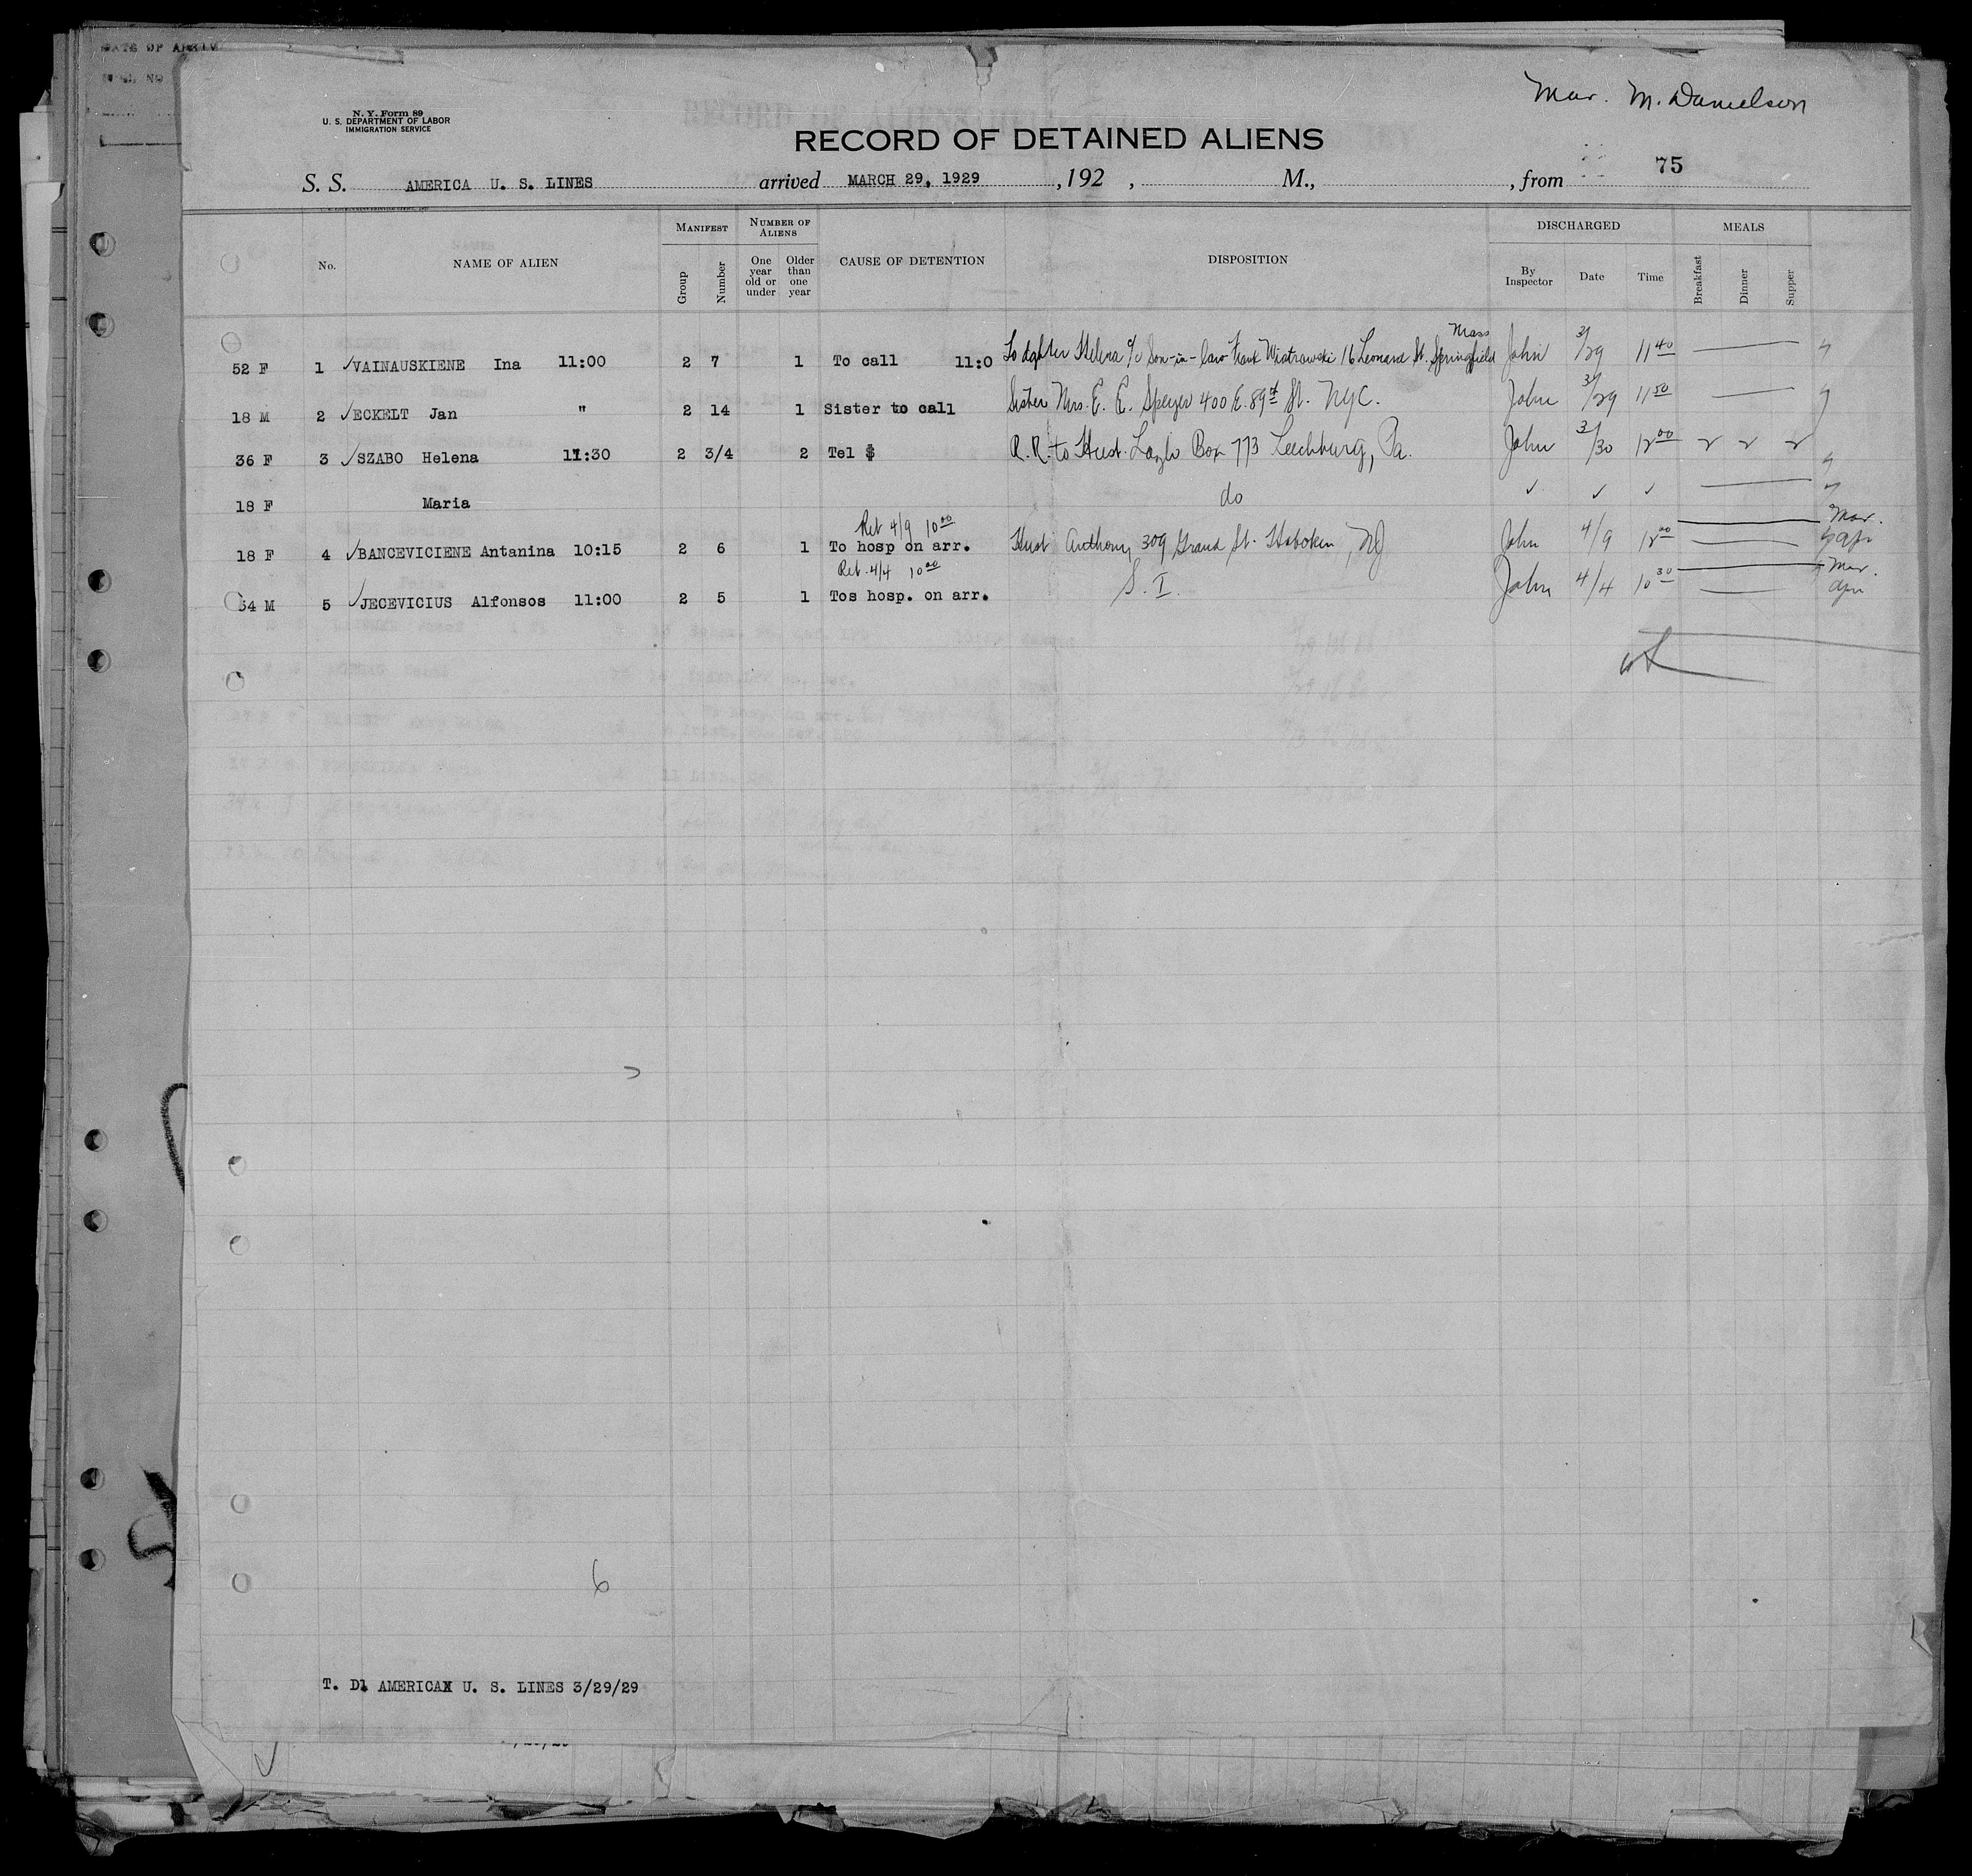 DATE OF ARRIV
Mar. M. Danielson
N. Y. Form 89
U. S. DEPARTMENT OF LABOR
IMMIGRATION SERVICE
RECORD OF DETAINED ALIENS
75
S. S. AMERICA U. S. LINES arrived MARCH 29, 1929, 192 , M., , from
No. NAME OF ALIEN MANIFEST Group Number NUMBER OF ALIENS One year old or under Older than one year CAUSE OF DETENTION DISPOSITION DISCHARGED By Inspector Date Time MEALS Breakfast Dinner Supper
Mass
52 F 1 ✓VAINAUSKIENE Ina 11:00 2 7 1 To call 11:0 To dghter Helena c/o Son-in-law Frank Wiatrowski 16 Leonard St. Springfield John 3/29 11 40
18 M 2 ✓ECKELT Jan " 2 14 1 Sister to call Sister Mrs. E. E. Speyer 400 E. 89th St. NYC. John 3/29 11 50
36 F 3 ✓SZABO Helena 11:30 2 3/4 2 Tel $ R.R. to Husb. Lazlo Box 773 Leechburg, Pa. John 3/30 12 00 2 2 2
18 F Maria do ✓ ✓ ✓
Ret 4/9 10 00 Mar.
18 F 4 ✓BANCEVICIENE Antanina 10:15 2 6 1 To hosp on arr. Husb Anthony 309 Grand St. Hoboken, NJ John 4/9 12 00 Apr
Ret. 4/4 10 00 Mar.
54 M 5 ✓JECEVICIUS Alfonsos 11:00 2 5 1 Tos hosp. on arr. S. I. John 4/4 10 30 Apr
6
T. D1 AMERICAX U. S. LINES 3/29/29